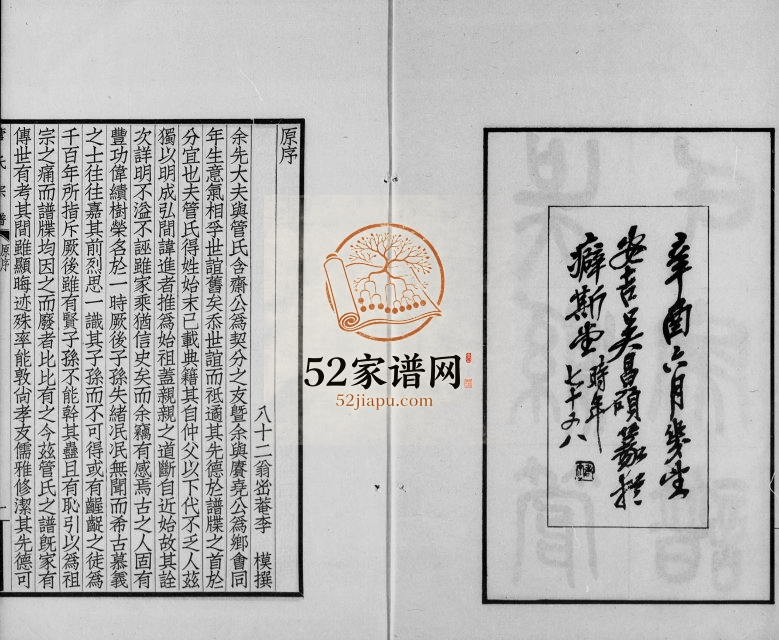 辛酉六月幾望
安吉吳昌碩篆於
癖斯堂時年
七十又八
原序
八十二翁峃菴李 模撰
余先大夫與管氏含齋公為契分之友暨余與賡堯公為鄉會同
年生意氣相孚世誼舊矣忝世誼而祗適其先德於譜牒之首於
分宜也夫管氏得姓始末已載典籍其自仲父以下代不乏人茲
獨以明成弘間諱進者推為始祖蓋親親之道斷自近始故其詮
次詳明不溢不誣雖家乘猶信史矣而余竊有感焉古之人固有
豐功偉績樹榮名於一時厥後子孫失緒泯泯無聞而希古慕義
之士往往嘉其前烈思一識其子孫而不可得或有齷齪之徒為
千百年所指斥厥後雖有賢子孫不能幹其蠱且有恥引以為祖
宗之痛而譜牒均因之而廢者比比有之今茲管氏之譜既家有
傳世有考其間雖顯晦迹殊率能敦尚孝友儒雅修潔其先德可
氏宗譜
原序
一
52家谱网
52jiapu.com